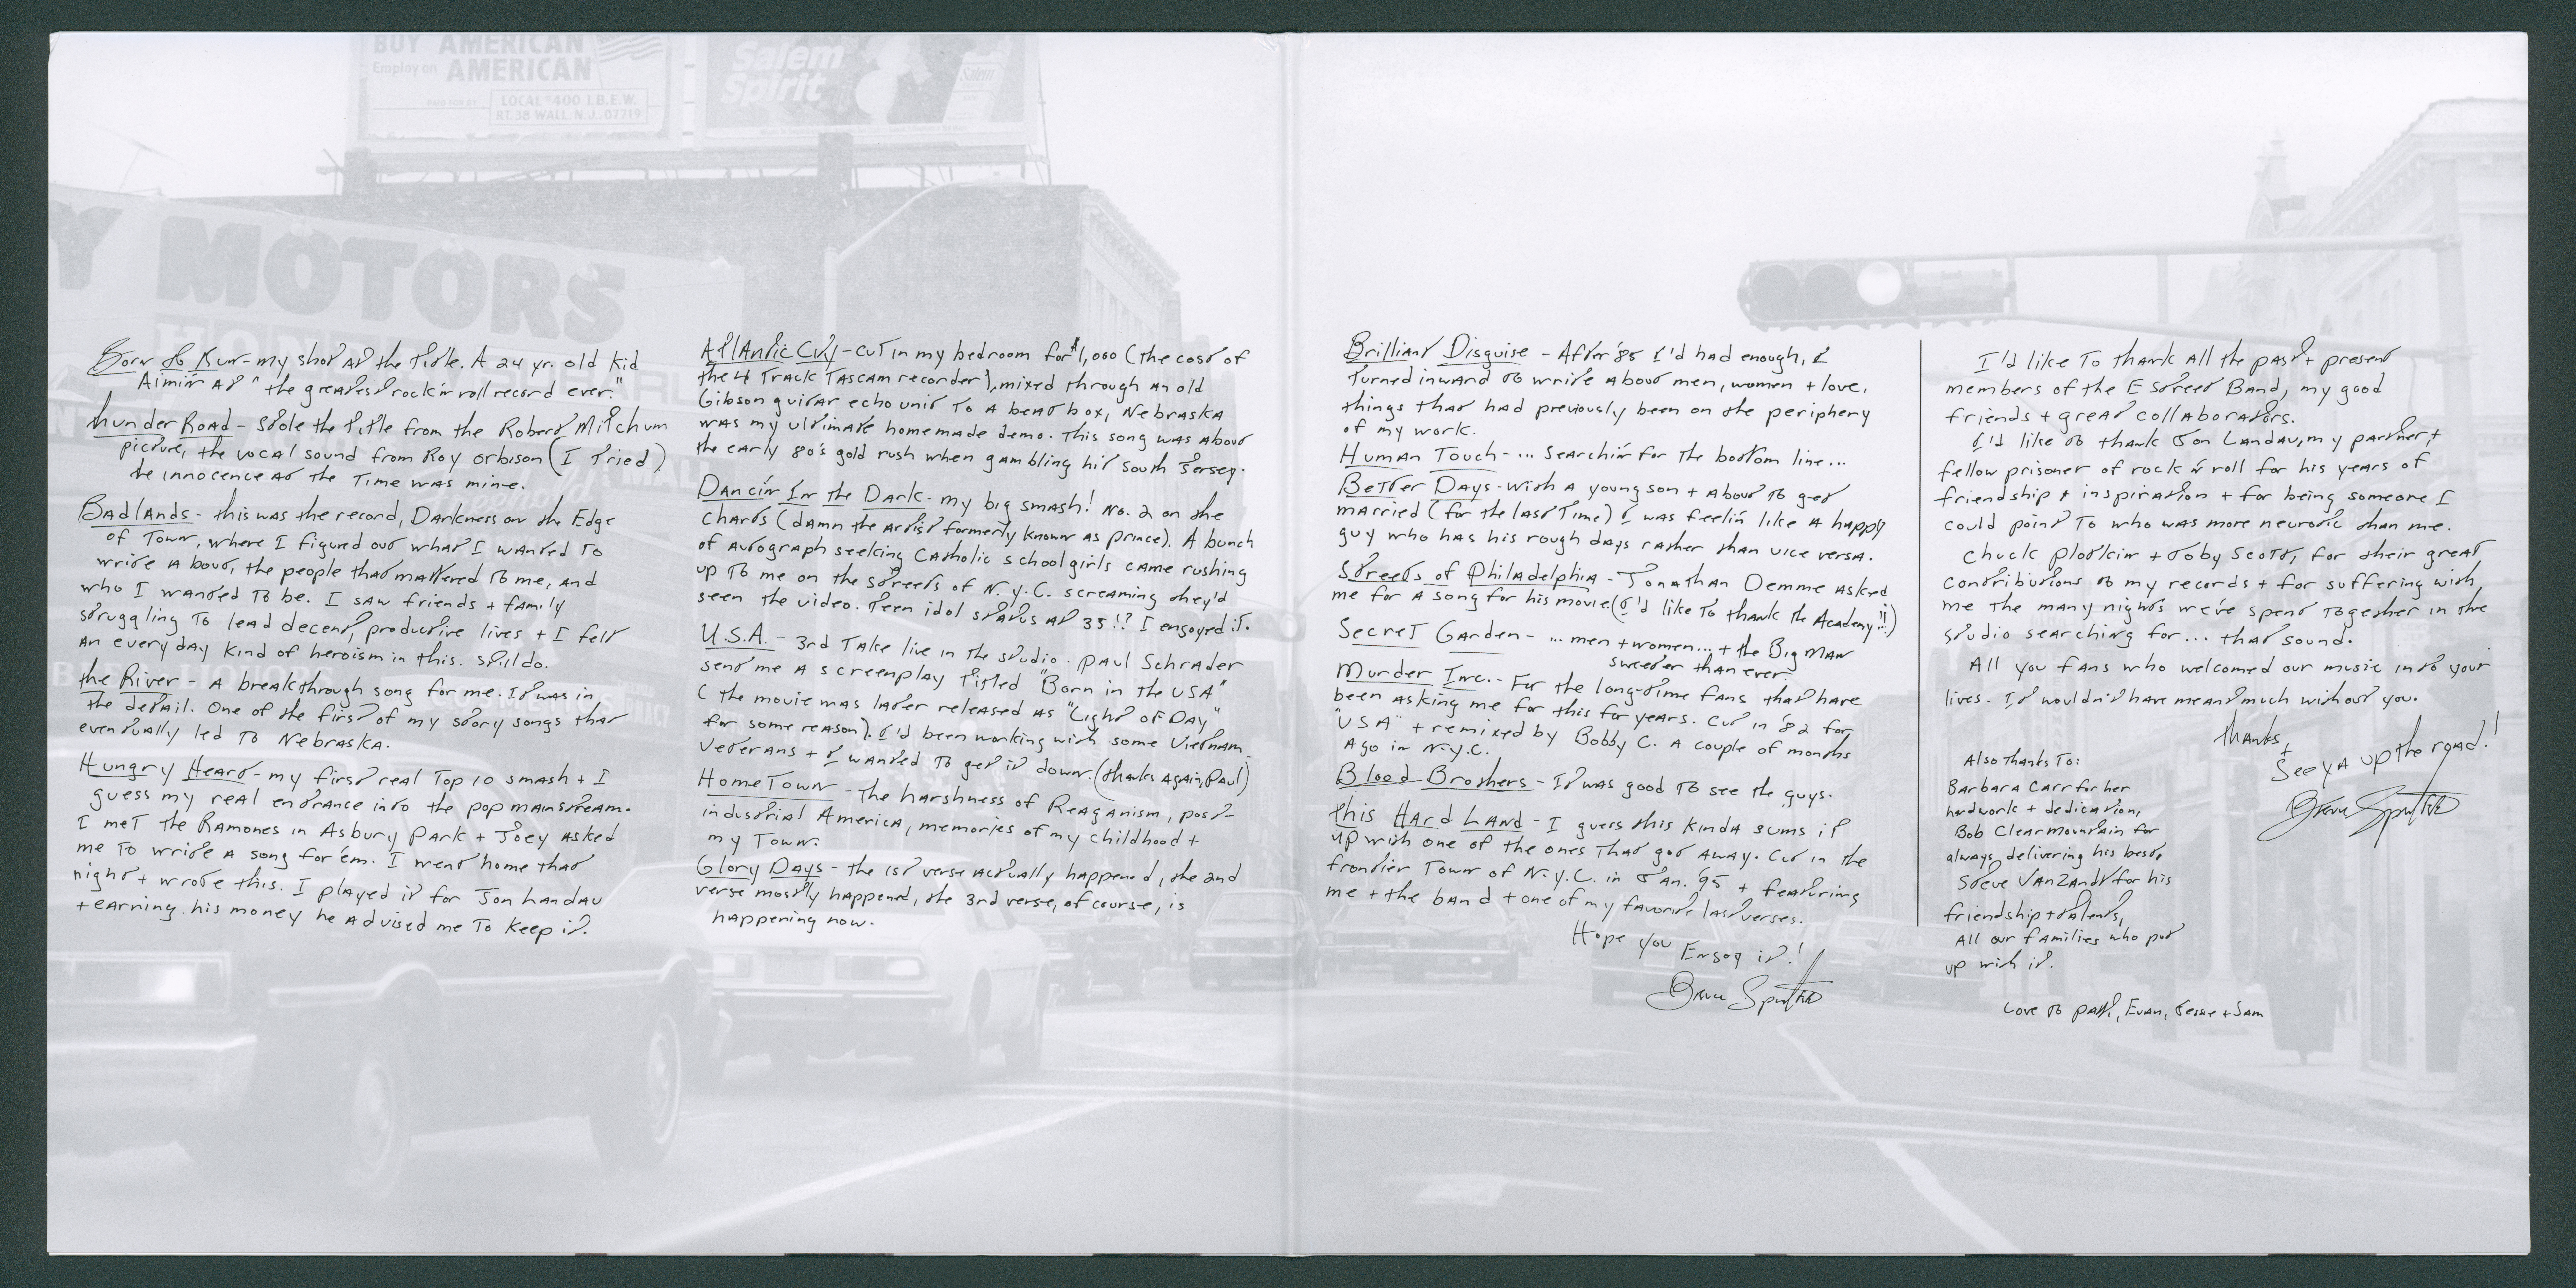 BUY AMERICAN
Employ an AMERICAN
PAID FOR BY
LOCAL 400 I.B.E.W.
RT. 38 WALL, N.J. 07719
Salem
Spirit
Salem
Y MOTORS
Born to Run - my shot at the title. A 24 yr. old kid
Aimin' at "the greatest rock'n roll record ever."
thunder Road - Stole the title from the Robert Mitchum
picture, the vocal sound from Roy Orbison (I tried)
the innocence at the time was mine.
Badlands - this was the record, Darkness on the Edge
of Town, where I figured out what I wanted to
write about, the people that mattered to me, and
who I wanted to be. I saw friends + family
struggling to lead decent, productive lives + I felt
an everyday kind of heroism in this. Still do.
the River - A breakthrough song for me. It was in
the detail. One of the first of my story songs that
eventually led to Nebraska.
Hungry Heart - my first real Top 10 smash + I
guess my real entrance into the pop mainstream.
I met the Ramones in Asbury Park + Joey asked
me to write a song for 'em. I went home that
night + wrote this. I played it for Jon Landau
+ earning his money he advised me to keep it.
Atlantic City - cut in my bedroom for $1,000 (the cost of
the 4 track Tascam recorder), mixed through an old
Gibson guitar echo unit to a beat box, Nebraska
was my ultimate homemade demo. This song was about
the early 80's gold rush when gambling hit south Jersey.
Dancin' In the Dark - my big smash! No. 2 on the
charts (damn the artist formerly known as prince). A bunch
of autograph seeking Catholic schoolgirls came rushing
up to me on the streets of N.Y.C. screaming they'd
seen the video. Teen idol status at 35!? I enjoyed it.
U.S.A. - 3rd take live in the studio. Paul Schrader
sent me a screenplay titled "Born in the USA"
(the movie was later released as "Light of Day"
for some reason). I'd been working with some Vietnam
Veterans + I wanted to get it down. (thanks again, Paul)
HomeTown - the harshness of Reaganism, post-
industrial America, memories of my childhood +
my Town.
Glory Days - the 1st verse actually happened, the 2nd
verse mostly happened, the 3rd verse, of course, is
happening now.
Brilliant Disguise - After '85 I'd had enough, I
turned inward to write about men, women + love,
things that had previously been on the periphery
of my work.
Human Touch - ... Searchin' for the bottom line...
Better Days - with a young son + about to get
married (for the last time) I was feelin' like a happy
guy who has his rough days rather than vice versa.
Streets of Philadelphia - Jonathan Demme asked
me for a song for his movie. (I'd like to thank the Academy!!!)
Secret Garden - ... men + women... + the Big Man
sweeter than ever.
Murder Inc. - For the long-time fans that have
been asking me for this for years. Cut in '82 for
"USA" + remixed by Bobby C. a couple of months
ago in N.Y.C.
Blood Brothers - It was good to see the guys.
this Hard Land - I guess this kinda sums it
up with one of the ones that got away. Cut in the
frontier town of N.Y.C. in Jan. '95 + featuring
me + the band + one of my favorite last verses.
Hope you Enjoy it!
Bruce Springsteen
I'd like to thank all the past + present
members of the E Street Band, my good
friends + great collaborators.
I'd like to thank Jon Landau, my partner +
fellow prisoner of rock n' roll for his years of
friendship + inspiration + for being someone I
could point to who was more neurotic than me.
Chuck Plotkin + Toby Scott, for their great
contributions to my records + for suffering with
me the many nights we've spent together in the
studio searching for... that sound.
All you fans who welcomed our music into your
lives. It wouldn't have meant much without you.
thanks,
+
See ya up the road!
Bruce Springsteen
Also thanks to:
Barbara Carr for her
hardwork + dedication,
Bob Clearmountain for
always delivering his best,
Steve Van Zandt for his
friendship + talents,
All our families who put
up with it.
Love to Patti, Evan, Jessie + Sam